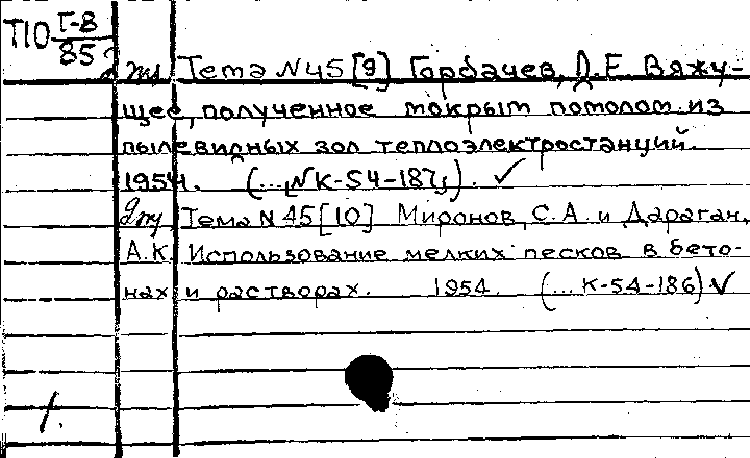 Т10 Г-8
85
2 экз. Тема N45 [9] Горбачев, Д.Е. Вяжу-
щее, полученное мокрым помолом из
пылевидных зол теплоэлектростанций.
1954. (... К-54-187). ✓
Тема N45 [10] Миронов, С.А. и Дараган,
А.К. Использование мелких песков в бето-
нах и растворах. 1954. (... К-54-186) ✓
1.